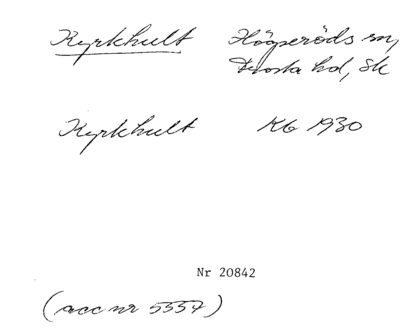 Kyrkhult Högseröds sn,
Frosta hd, Sk
Kyrkhult Kb 1930
Nr 20842
(acc nr 5557)